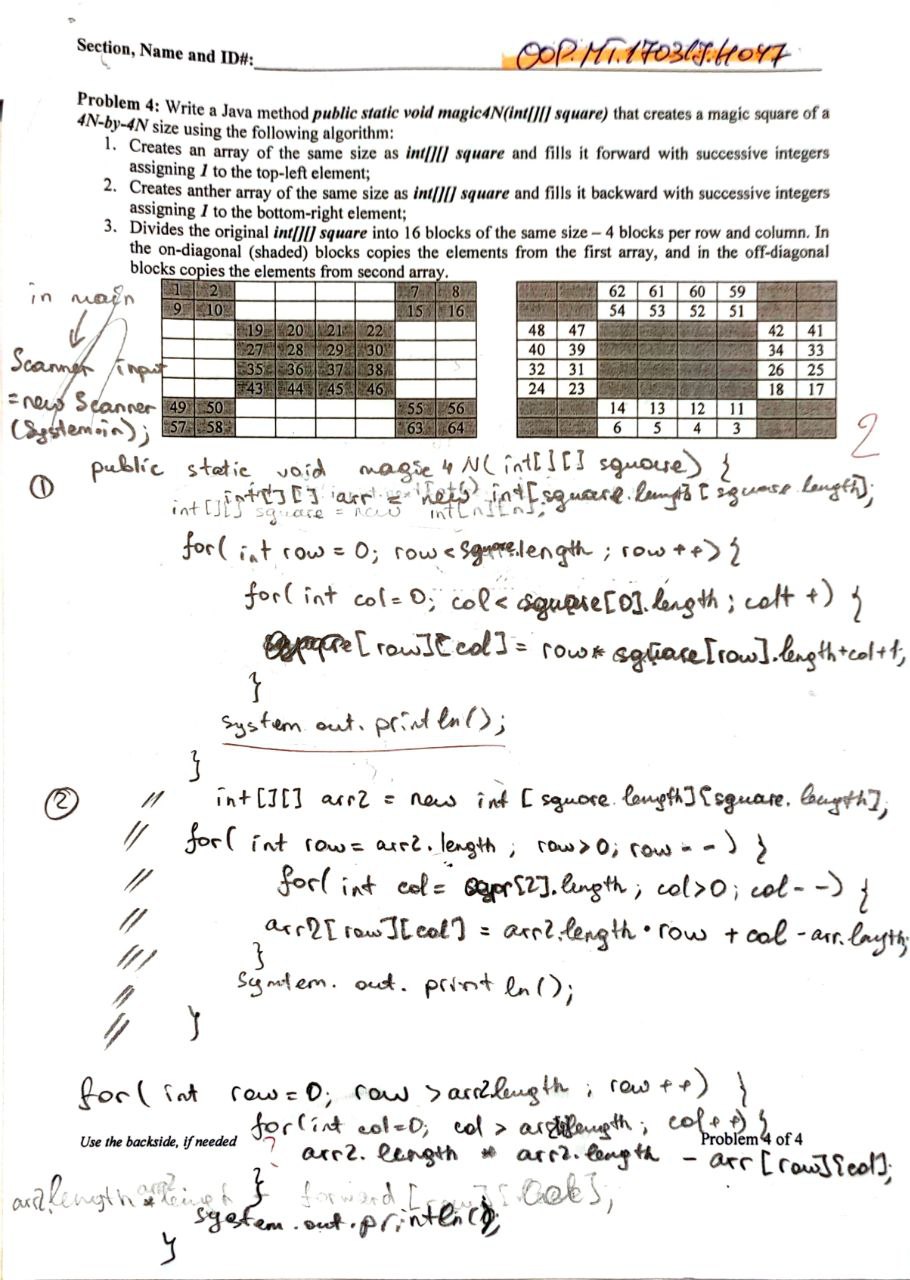 Section, Name and ID#:
OOP.MT.170317.H047
Problem 4: Write a Java method public static void magic4N(int[][] square) that creates a magic square of a
4N-by-4N size using the following algorithm:
1. Creates an array of the same size as int[][] square and fills it forward with successive integers
assigning 1 to the top-left element;
2. Creates anther array of the same size as int[][] square and fills it backward with successive integers
assigning 1 to the bottom-right element;
3. Divides the original int[][] square into 16 blocks of the same size – 4 blocks per row and column. In
the on-diagonal (shaded) blocks copies the elements from the first array, and in the off-diagonal
blocks copies the elements from second array.
in main
Scanner input
= new Scanner
(System.in);
1 2 7 8
9 10 15 16
19 20 21 22
27 28 29 30
35 36 37 38
43 44 45 46
49 50 55 56
57 58 63 64
62 61 60 59
54 53 52 51
48 47 42 41
40 39 34 33
32 31 26 25
24 23 18 17
14 13 12 11
6 5 4 3
2
public static void magic4N(int[][] square) {
1
int[][] arr = new int[square.length[square.length];
int[][] square = new int[n][n];
for( int row = 0; row < square.length ; row ++) {
for( int col = 0; col < square[0].length ; col+ +) {
square[row][col] = row* square[row].length+col+1;
}
system.out.println();
}
2
int[][] arr2 = new int [square.length][square.length];
for( int row = arr2.length ; row>0; row - -) {
for( int col = [2].length ; col>0; col- -) {
arr2[row][col] = arr2.length • row + col - arr.length;
}
System. out. print ln();
}
for( int row = 0; row > arr2.length ; row ++) }
for(int col=0; col > length; col++) {
Use the backside, if needed
Problem 4 of 4
?
arr2. length * arr2. length - arr[row][col];
arr2.length * arr2.length
} forward [row][col];
system.out.println();
}